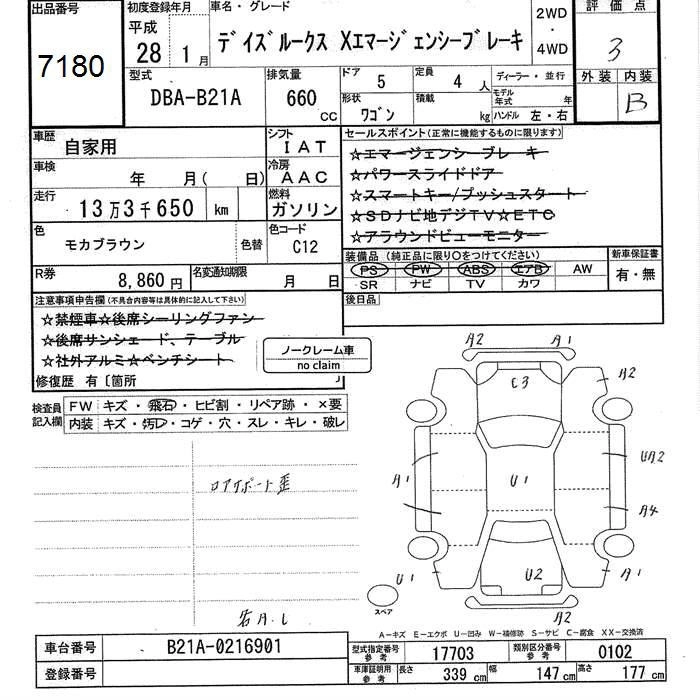 出品番号
7180
初度登録年月
平成
28 1月
車名・グレード
デイズルークス Xエマージェンシーブレーキ
2WD
・
4WD
評価点
3
外装 内装
B
型式
DBA-B21A
排気量
660 cc
ドア 5
定員 4人
形状 ワゴン
積載 kg
ディーラー・並行
モデル年式 年
ハンドル 左・右
車歴 自家用
シフト IAT
車検 年 月( 日)
冷房 AAC
走行 13万3千650 km
燃料 ガソリン
色 モカブラウン 色替
色コード C12
R券 8,860円
名変通知期限 月 日
セールスポイント(正常に機能するものに限ります)
☆エマージェンシーブレーキ
☆パワースライドドア
☆スマートキー/プッシュスタート
☆SDナビ地デジTV☆ETC
☆アラウンドビューモニター
装備品(純正品に限り○をつけてください)
PS PW ABS エアB AW
SR ナビ TV カワ
新車保証書
有・無
後日品
注意事項申告欄(不具合内容等は具体的に記入して下さい)
☆禁煙車☆後席シーリングファン
☆後席サンシェード、テーブル
☆社外アルミ☆ベンチシート
修復歴 有〔箇所 〕
ノークレーム車
no claim
検査員記入欄
FW キズ・飛石・ヒビ割・リペア跡・×要
内装 キズ・汚レ・コゲ・穴・スレ・キレ・破レ
ロアサポート歪
A2 A1
E3
A2
A1
U1
UA2
A4
U1
U2
A1
A2
スペア
A-キズ E-エクボ U-凹み W-補修跡 S-サビ C-腐食 XX-交換済
車台番号 B21A-0216901
登録番号
型式指定番号 参考 17703
類別区分番号 参考 0102
車庫証明用 参考 長さ 339 cm 幅 147 cm 高さ 177 cm